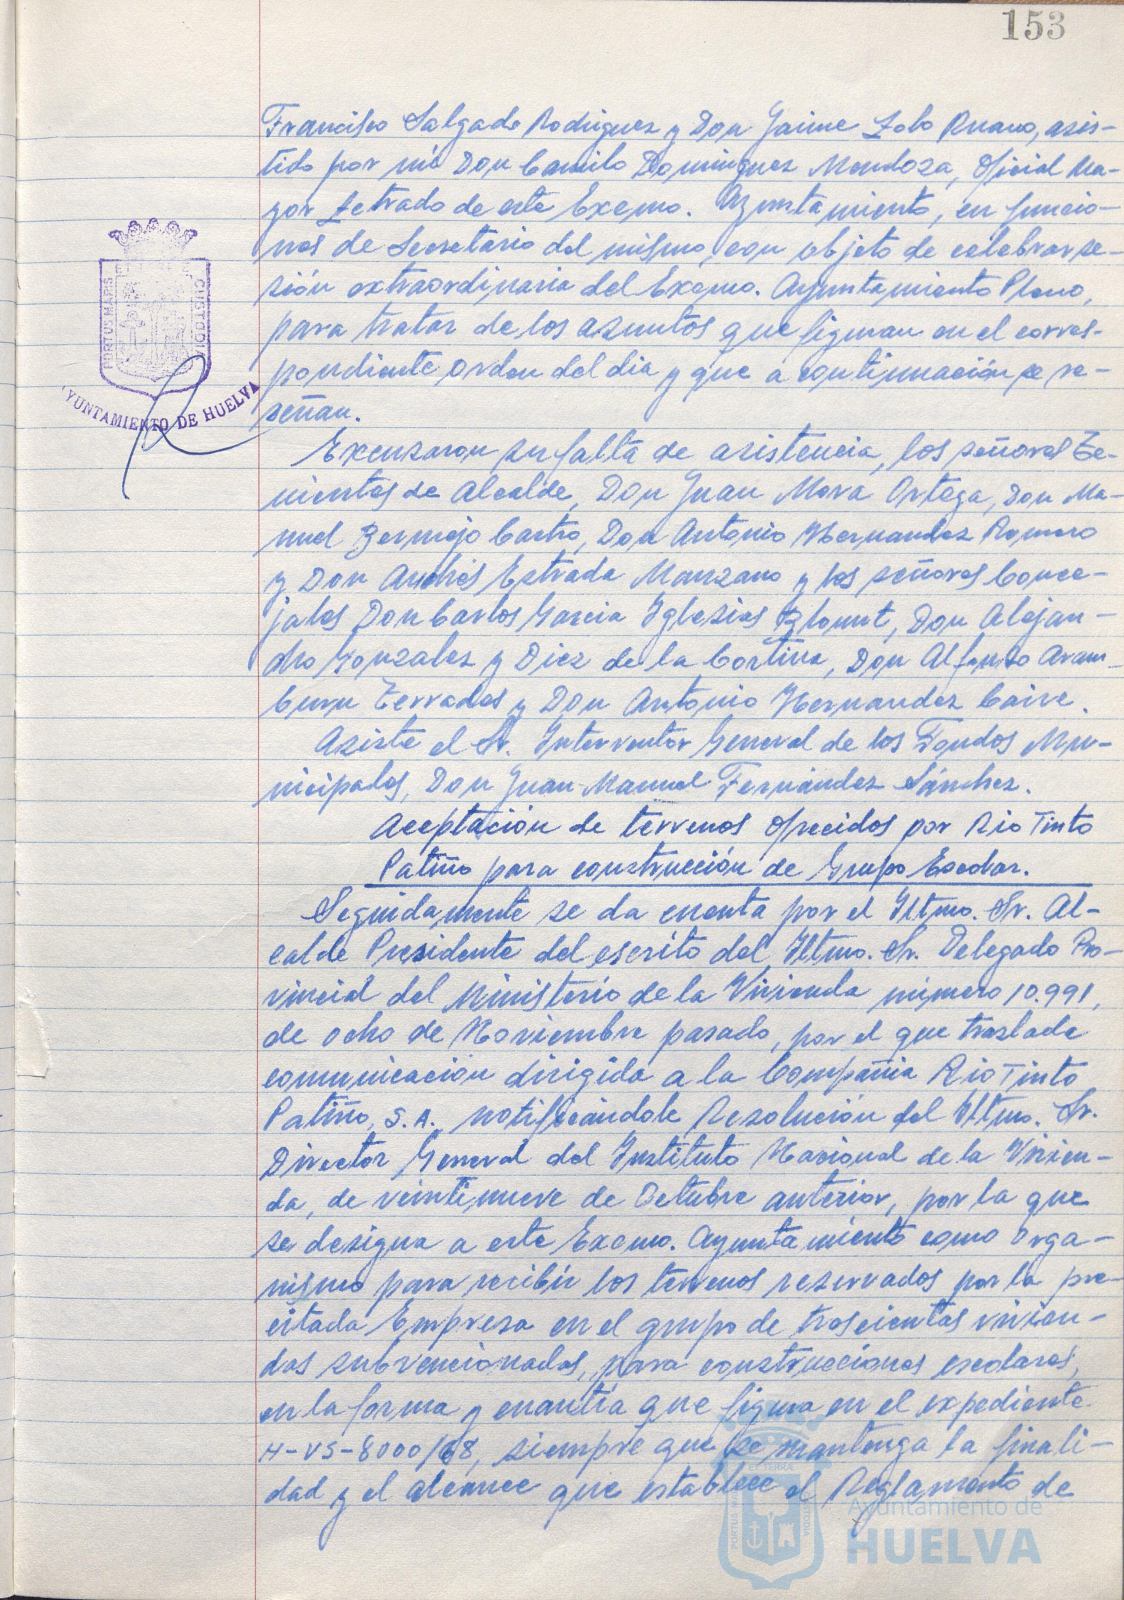 153
Francisco Salgado Rodriguez y Don Jaime Lobo Ruano, asis-
tido por mi Don Camilo Dominguez Mendoza, Oficial Ma-
yor Letrado de este Excmo. Ayuntamiento, en funcio-
nes de Secretario del mismo, con objeto de celebrar se-
sión extraordinaria del Excmo. Ayuntamiento Pleno,
para tratar de los asuntos que figuran en el corres-
pondiente orden del dia y que a continuación se re-
señan.
PORTUS MARIS
CUSTODIA
AYUNTAMIENTO DE HUELVA
Excusaron su falta de asistencia, los señores Te-
nientes de Alcalde, Don Juan Mora Ortega, Don Ma-
nuel Bermejo Castro, Don Antonio Hernandez Romero
y Don Andrés Estrada Manzano y los señores Conce-
jales Don Carlos Garcia Iglesias Blount, Don Alejan-
dro Gonzalez y Diez de la Cortina, Don Alfonso Aram-
buru Terrades y Don Antonio Hernandez Caire.
Asiste el Sr. Interventor General de los Fondos Mu-
nicipales, Don Juan-Manuel Fernández Sánchez.
Aceptación de terrenos ofrecidos por Rio Tinto
Patiño para construcción de Grupo Escolar.
Seguidamente se da cuenta por el Iltmo. Sr. Al-
calde Presidente del escrito del Iltmo. Sr. Delegado Pro-
vincial del Ministerio de la Vivienda número 10.991,
de ocho de Noviembre pasado, por el que traslada
comunicación dirigida a la Compañia Rio Tinto
Patiño, S.A., notificándole Resolución del Iltmo. Sr.
Director General del Instituto Nacional de la Vivien-
da, de veintinueve de Octubre anterior, por la que
se designa a este Excmo. Ayuntamiento como Orga-
nismo para recibir los terrenos reservados por la pre-
citada Empresa en el grupo de trescientas vivien-
das subvencionadas, para construcciones escolares,
en la forma y cuantía que figura en el expediente
H-VS-8000/68, siempre que se mantenga la finali-
dad y el alcance que establece el Reglamento de
Ayuntamiento de
HUELVA